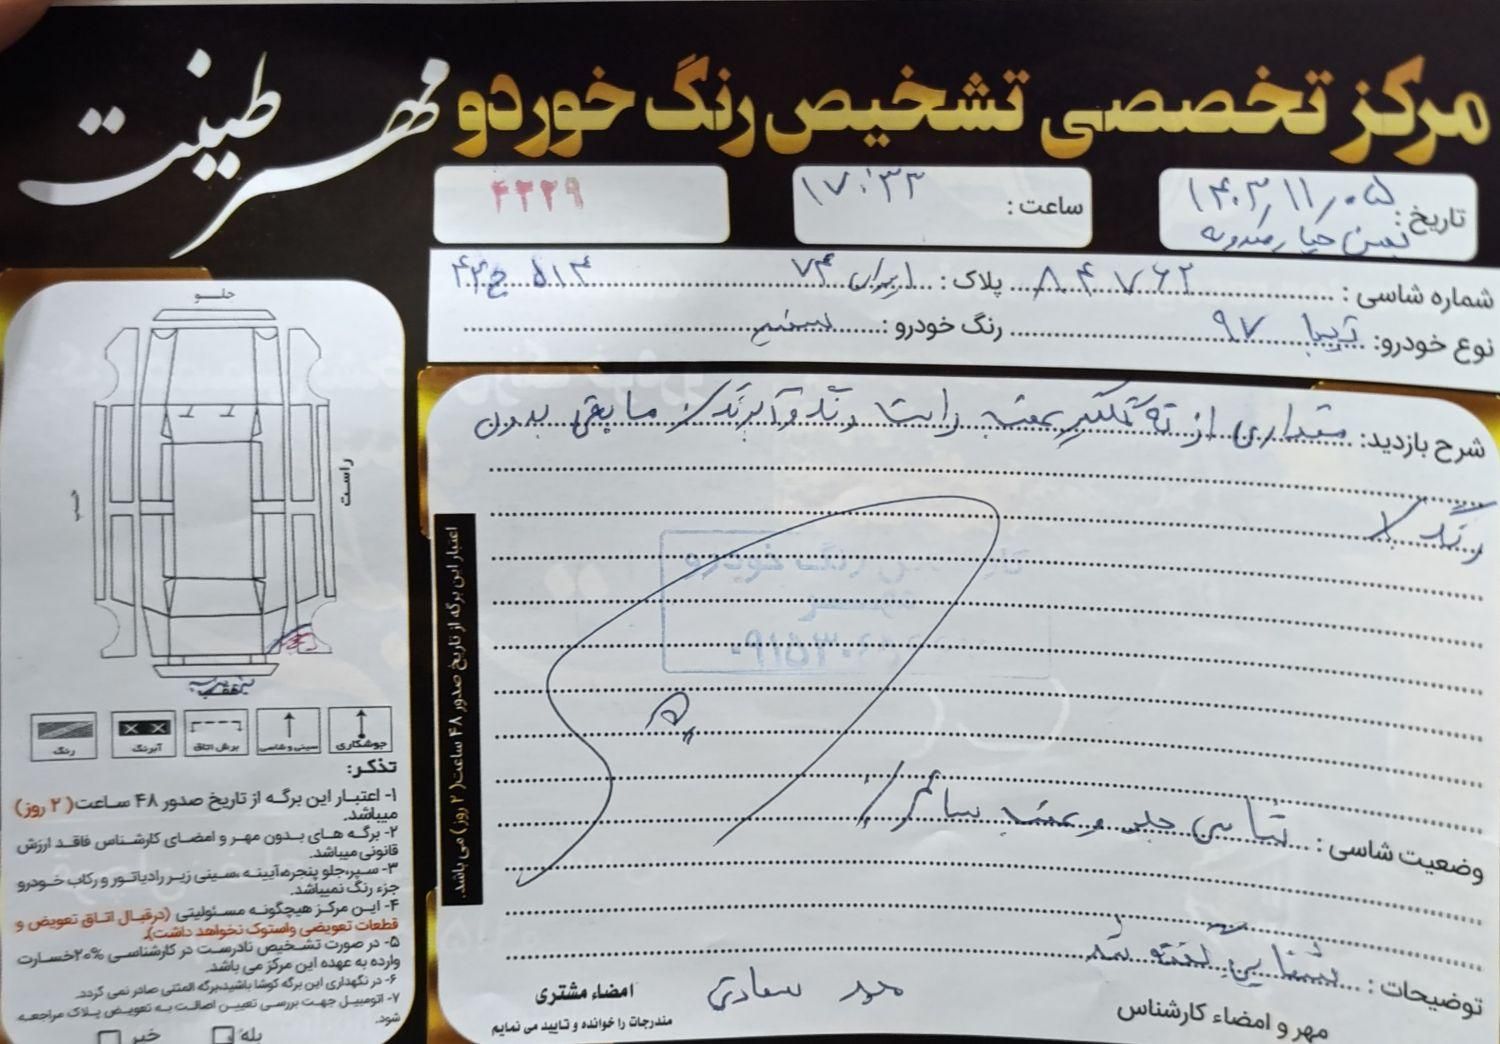 مرکز تخصصی تشخیص رنگ خوردو
مهر طینت
تاریخ: ۱۴۰۳/۱۱/۰۵
ساعت: ۱۷:۳۳
۴۳۲۹
شماره شاسی: ۸۴۷۶۲ پلاک: ایران ۷۴ ۵۱۴ ج ۴۲
نوع خودرو: تیبا ۹۷ رنگ خودرو: سفید
شرح بازدید: مقداری از ته گلگیر عقب راست رنگ و آبرنگ / مابقی بدون
رنگ
وضعیت شاسی: شاسی جلو و عقب سالم
توضیحات: شفاهی گفته شد
مهر و امضاء کارشناس
امضاء مشتری
مندرجات را خوانده و تایید می نمایم
اعتبار این برگه از تاریخ صدور ۴۸ ساعت (۲ روز) می باشد.
جلو
راست
چپ
عقب
جوشکاری
سینی و شاسی
برش اتاق
آبرنگ
رنگ
تذکر:
۱- اعتبار این برگه از تاریخ صدور ۴۸ ساعت (۲ روز)
میباشد.
۲- برگه های بدون مهر و امضای کارشناس فاقد ارزش
قانونی میباشد.
۳- سپر،جلو پنجره،آیینه ،سینی زیر رادیاتور و رکاب خودرو
جزء رنگ نمیباشد.
۴- این مرکز هیچگونه مسئولیتی (درقبال اتاق تعویض و
قطعات تعویضی واستوک نخواهد داشت).
۵- در صورت تشخیص نادرست در کارشناسی ۲۰% خسارت
وارده به عهده این مرکز می باشد.
۶- در نگهداری این برگه کوشا باشید،برگه المثنی صادر نمی گردد.
۷- اتومبیل جهت بررسی تعیین اصالت به تعویض پلاک مراجعه
شود.
بله
خیر